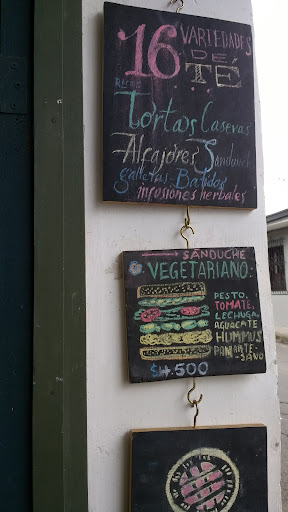 16 VARIEDADES
DE
TÉ
Tortas Caseras
Alfajores Sanduch
galletas Batidos
infusiones herbales
SANDUCHE
VEGETARIANO:
PESTO,
TOMATE,
LECHUGA,
AGUACATE
HUMMUS
PAN ARTE-
-SANO
$4.500